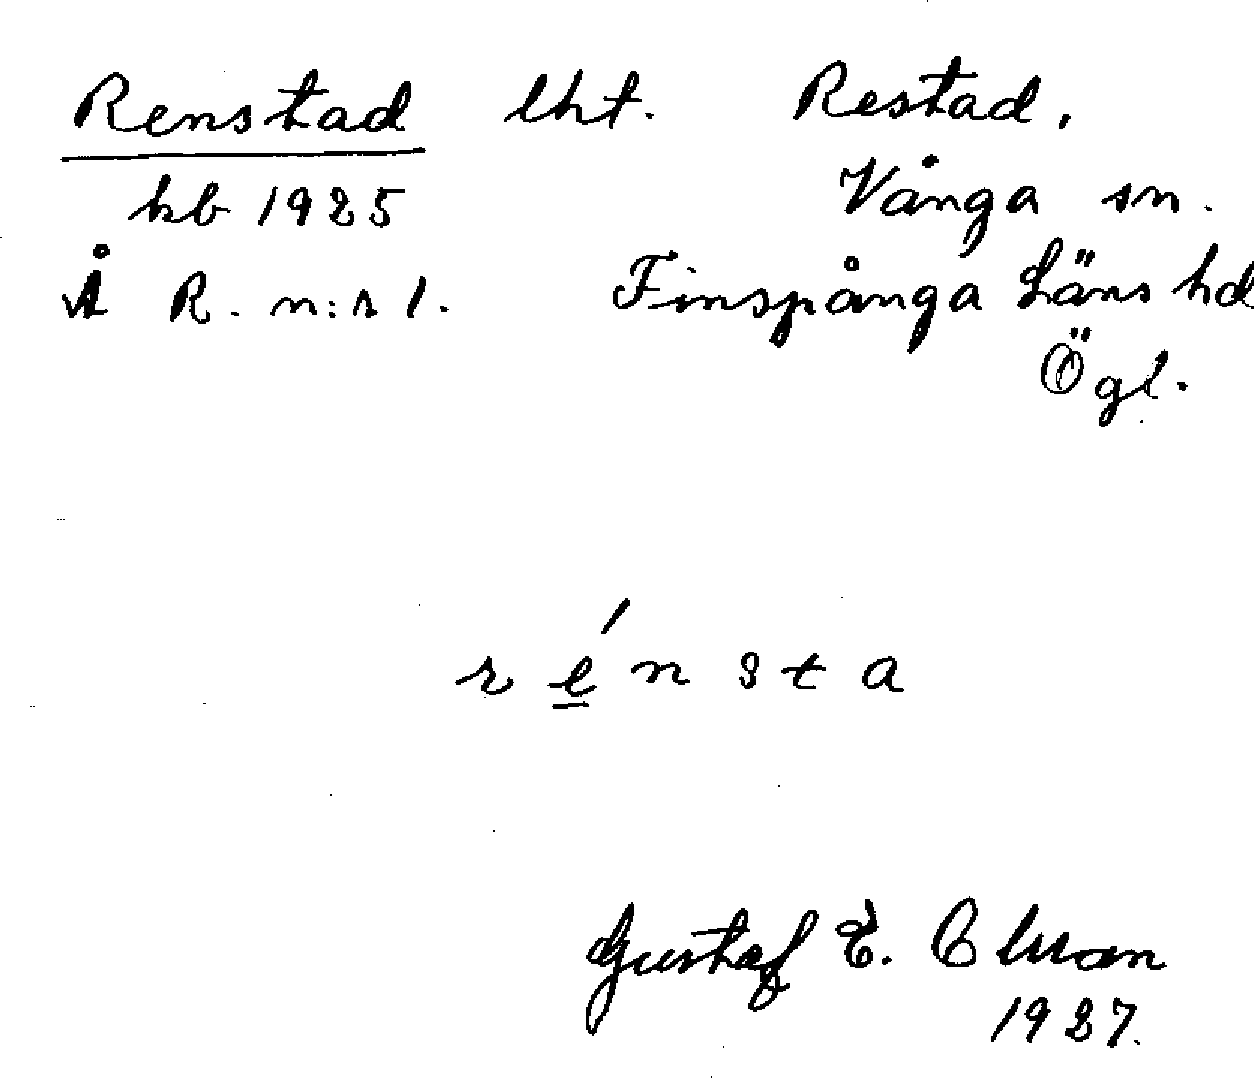 Renstad lht. Restad,
kb 1925 Vånga sn.
Å R. n:r 1. Finspånga Läns hd
Ögl.
r é n s t a
Gustaf E.
1927.